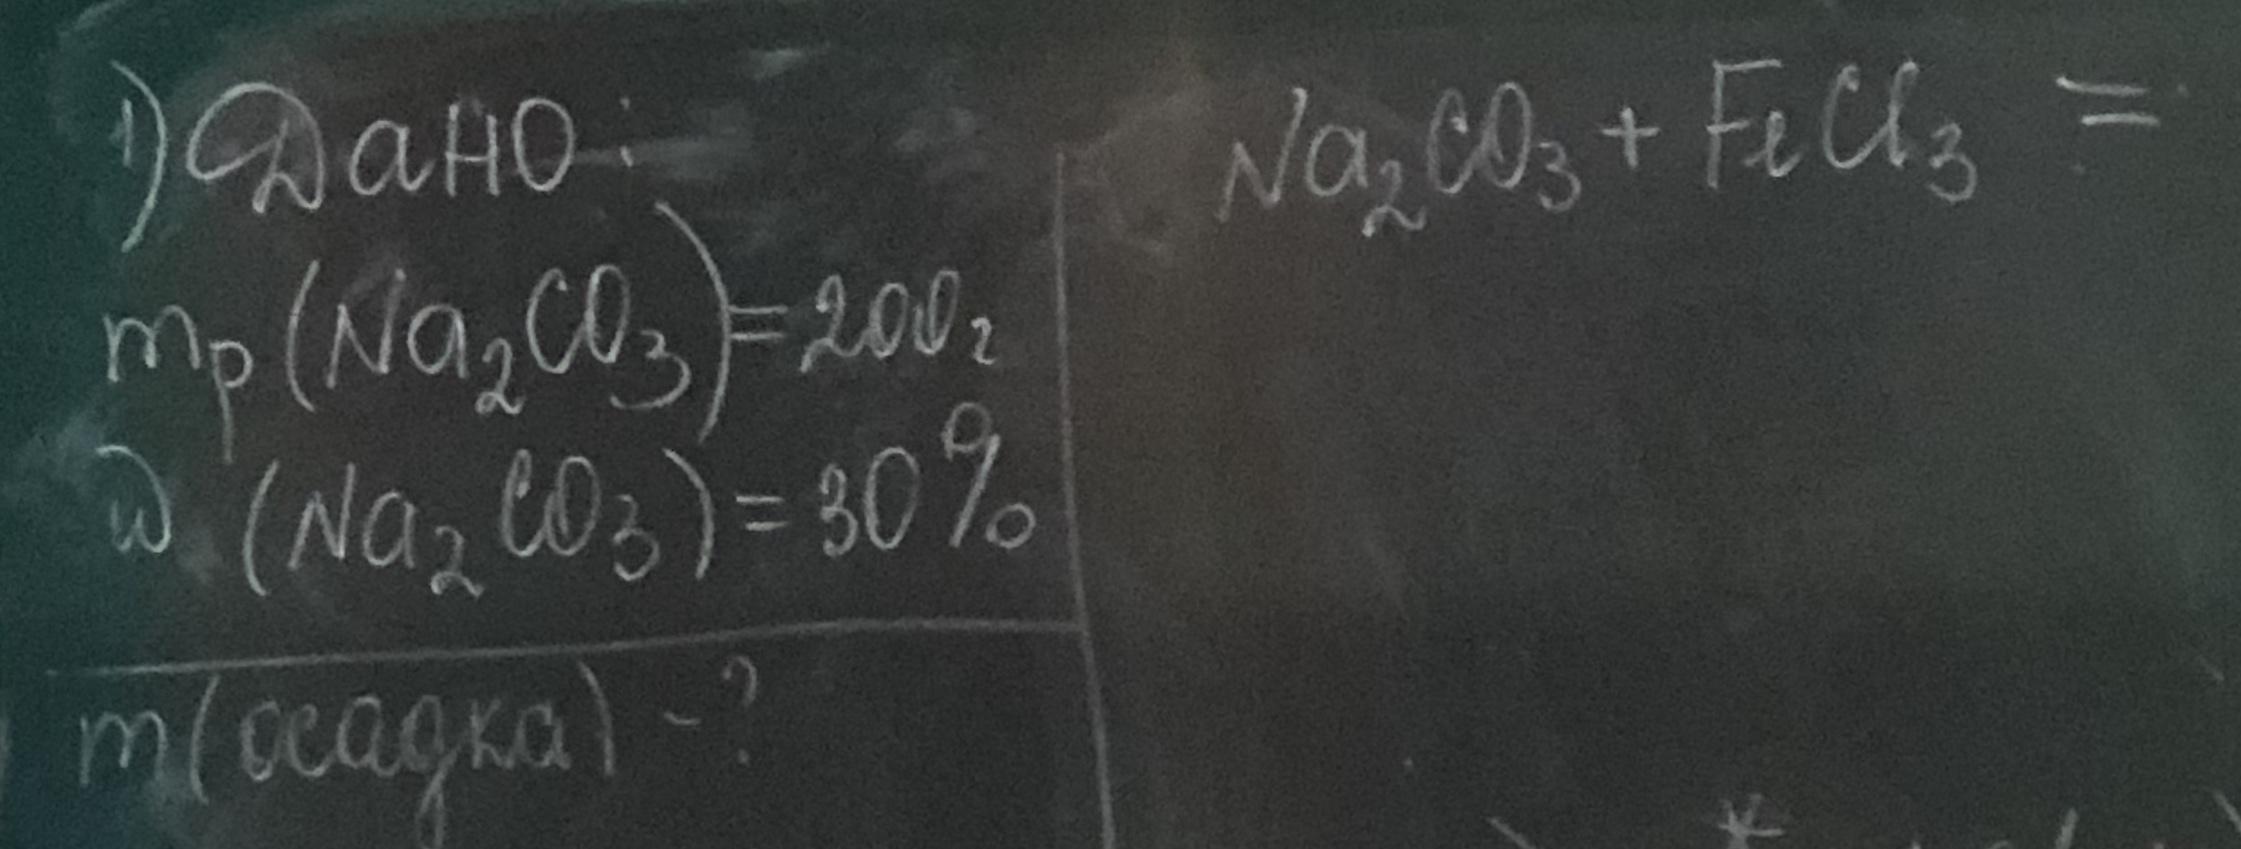 1) Дано:
mр (Na₂CO₃) = 200г
ω (Na₂CO₃) = 30%
m(осадка) - ?
Na₂CO₃ + FeCl₃ =